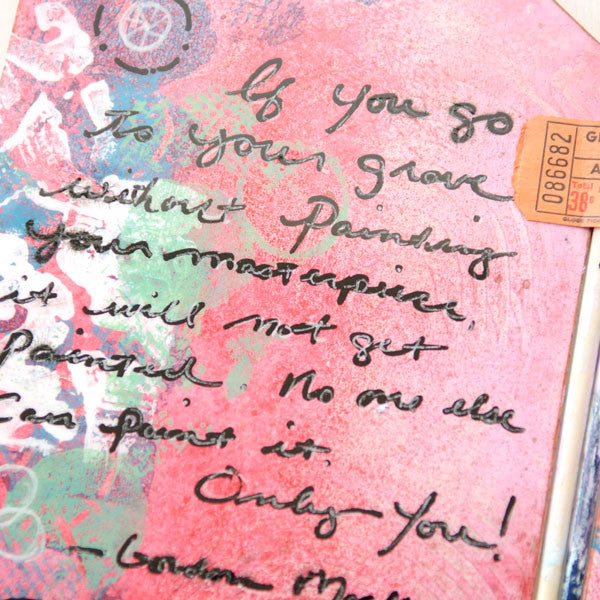 If you go
to your grave
without Painting
your masterpiece,
it will not get
Painted. No one else
Can paint it.
Only You!
— Gordon
086682
38¢